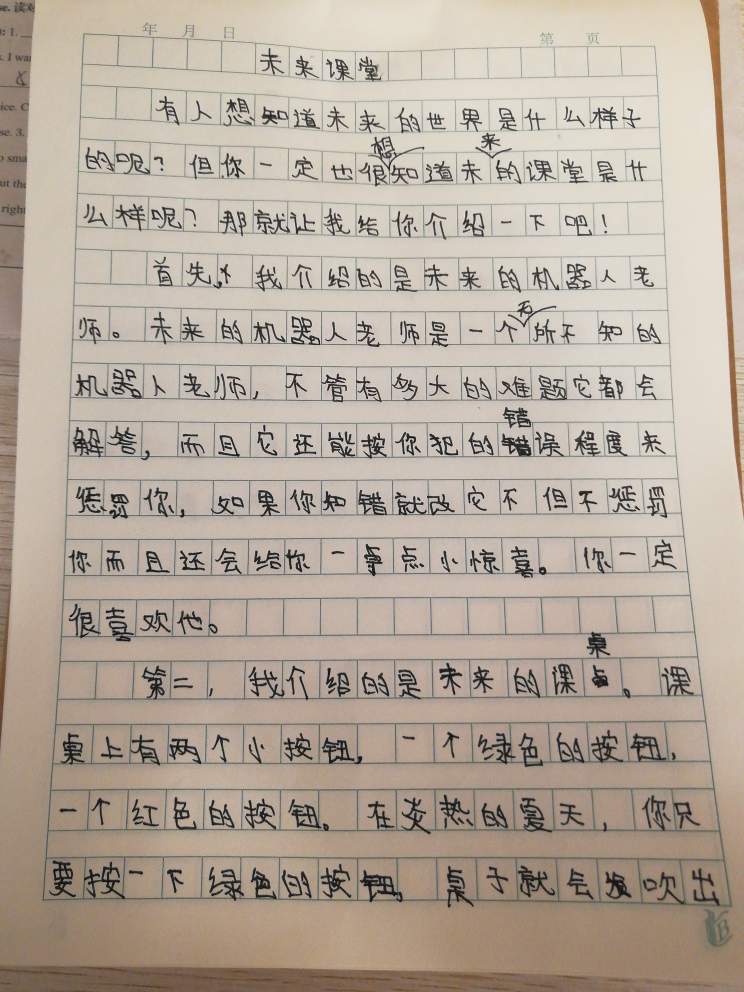 se. 读对
年 月 日 第 页
: 1.
. I wa
ice. C
se. 3.
o sma
ut the
right
未来课堂
有人想知道未来的世界是什么样子
的呢？但你一定也很想知道未来的课堂是什
么样呢？那就让我给你介绍一下吧！
首先，我介绍的是未来的机器人老
师。未来的机器人老师是一个无所不知的
机器人老师，不管有多大的难题它都会
解答，而且它还能按你犯的错误程度来
惩罚你，如果你知错就改它不但不惩罚
你而且还会给你一点小惊喜。你一定
很喜欢他。
第二，我介绍的是未来的课桌。课
桌上有两个小按钮，一个绿色的按钮，
一个红色的按钮。在炎热的夏天，你只
要按一下绿色的按钮。桌子就会吹出
B